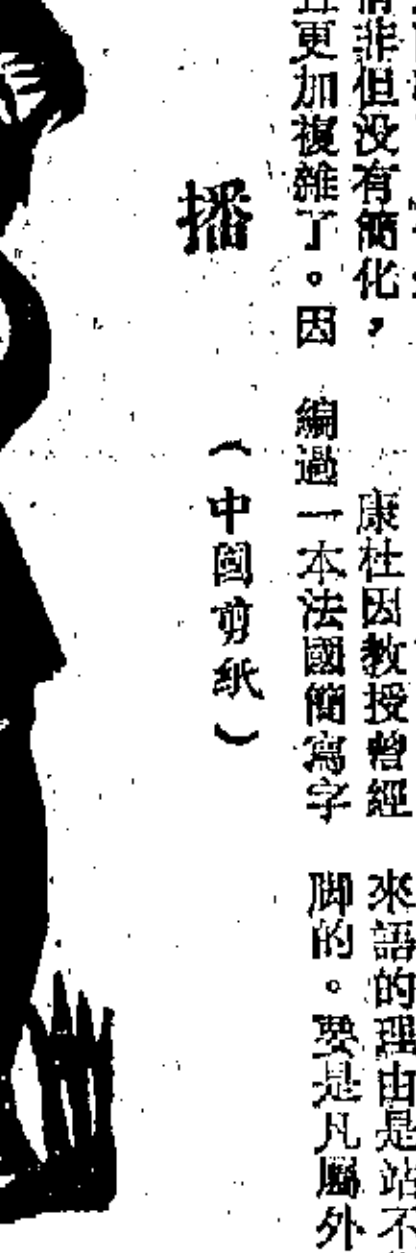 情非但没有簡化，
且更加複雜了。因
康杜因教授曾經
編過一本法國簡寫字
來語的理由是站不
脚的。要是凡屬外
播
（中國剪紙）